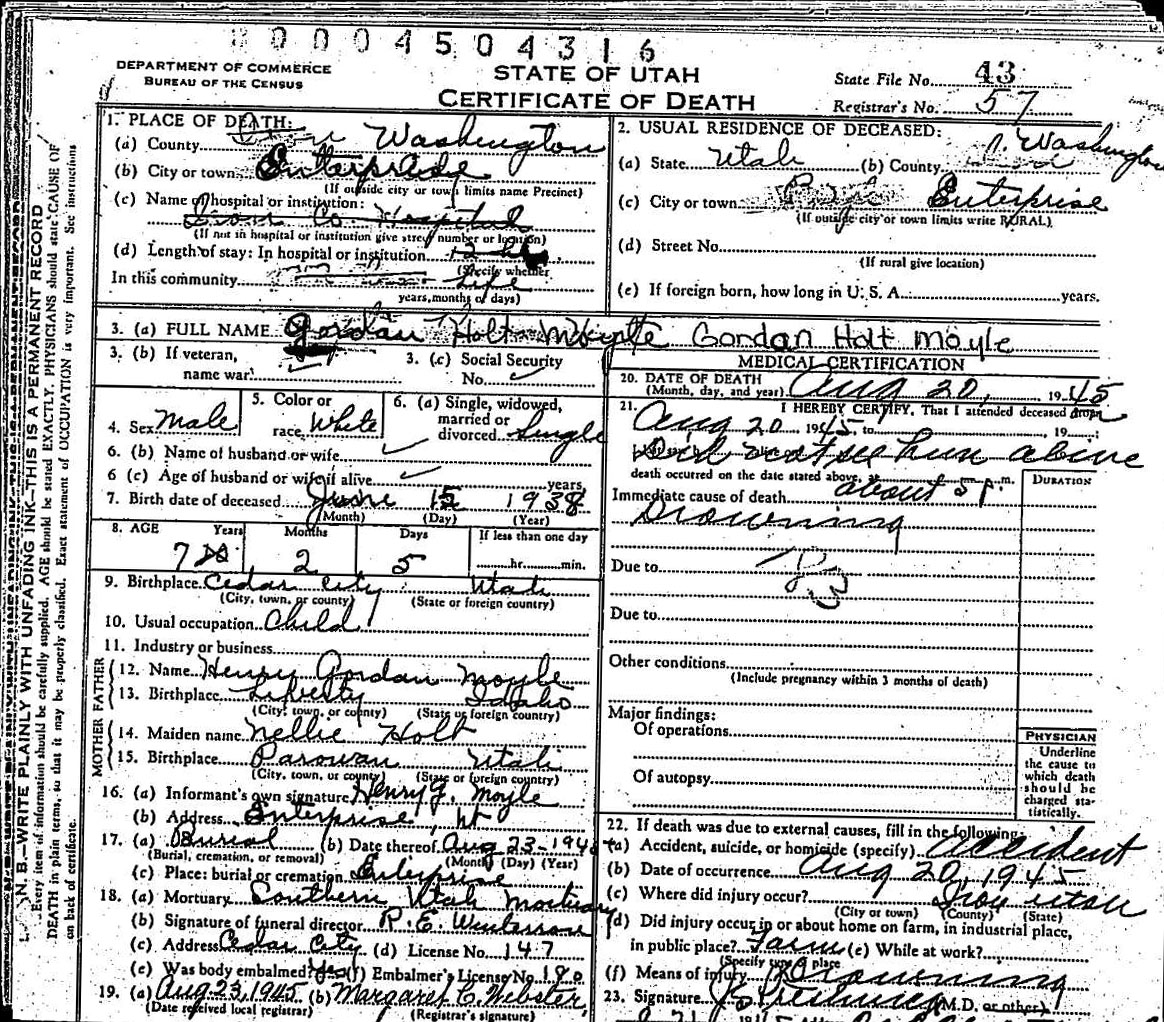 0004504316
DEPARTMENT OF COMMERCE
BUREAU OF THE CENSUS
STATE OF UTAH
CERTIFICATE OF DEATH
State File No. 43
Registrar's No. 57
1. PLACE OF DEATH:
(a) County Washington
(b) City or town Enterprise
(If outside city or town limits name Precinct)
(c) Name of hospital or institution:
Iron Co. Hospital
(If not in hospital or institution give street number or location)
(d) Length of stay: In hospital or institution
(Specify whether
In this community Life
years, months or days)
2. USUAL RESIDENCE OF DECEASED:
(a) State Utah (b) County Washington
(c) City or town Enterprise
(If outside city or town limits write RURAL)
(d) Street No.
(If rural give location)
(e) If foreign born, how long in U. S. A. years.
3. (a) FULL NAME Gordan Holt Moyle Gordan Holt Moyle
3. (b) If veteran,
name war
3. (c) Social Security
No.
4. Sex Male
5. Color or
race White
6. (a) Single, widowed,
married or
divorced Single
6. (b) Name of husband or wife
6 (c) Age of husband or wife if alive years
7. Birth date of deceased June 15 1938
(Month) (Day) (Year)
8. AGE Years Months Days If less than one day
7 2 5 hr. min.
9. Birthplace Cedar City Utah
(City, town, or county) (State or foreign country)
10. Usual occupation Child
11. Industry or business
FATHER
12. Name Henry Gordan Moyle
13. Birthplace Liberty Idaho
(City, town, or county) (State or foreign country)
MOTHER
14. Maiden name Nellie Holt
15. Birthplace Parowan Utah
(City, town, or county) (State or foreign country)
16. (a) Informant's own signature Henry G. Moyle
(b) Address Enterprise, Ut
17. (a) Burial (b) Date thereof Aug 23-194
(Burial, cremation, or removal) (Month) (Day) (Year)
(c) Place: burial or cremation Enterprise
18. (a) Mortuary Southern Utah Mortuary
(b) Signature of funeral director R. E.
(c) Address Cedar City (d) License No. 147
(e) Was body embalmed? Yes (f) Embalmer's License No. 180
19. (a) Aug 23, 1945 (b) Margaret C. Webster,
(Date received local registrar) (Registrar's signature)
MEDICAL CERTIFICATION
20. DATE OF DEATH
(Month, day, and year) Aug 20, 1945
21. I HEREBY CERTIFY, That I attended deceased from
Aug 20 1945 to 19
Did not see him alive
death occurred on the date stated above, at about 5 p. m.
DURATION
Immediate cause of death
Drowning
Due to
Due to
Other conditions
(Include pregnancy within 3 months of death)
Major findings:
Of operations
Of autopsy
PHYSICIAN
Underline
the cause to
which death
should be
charged sta-
tistically.
22. If death was due to external causes, fill in the following:
(a) Accident, suicide, or homicide (specify) Accident
(b) Date of occurrence Aug 20, 1945
(c) Where did injury occur? Iron Utah
(City or town) (County) (State)
(d) Did injury occur in or about home on farm, in industrial place,
in public place? Farm (e) While at work?
(Specify type of place
(f) Means of injury Drowning
23. Signature (M.D. or other)
N. B.—WRITE PLAINLY WITH UNFADING INK—THIS IS A PERMANENT RECORD
Every item of information should be carefully supplied. AGE should be stated EXACTLY. PHYSICIANS should state CAUSE OF
DEATH in plain terms, so that it may be properly classified. Exact statement of OCCUPATION is very important. See instructions
on back of certificate.